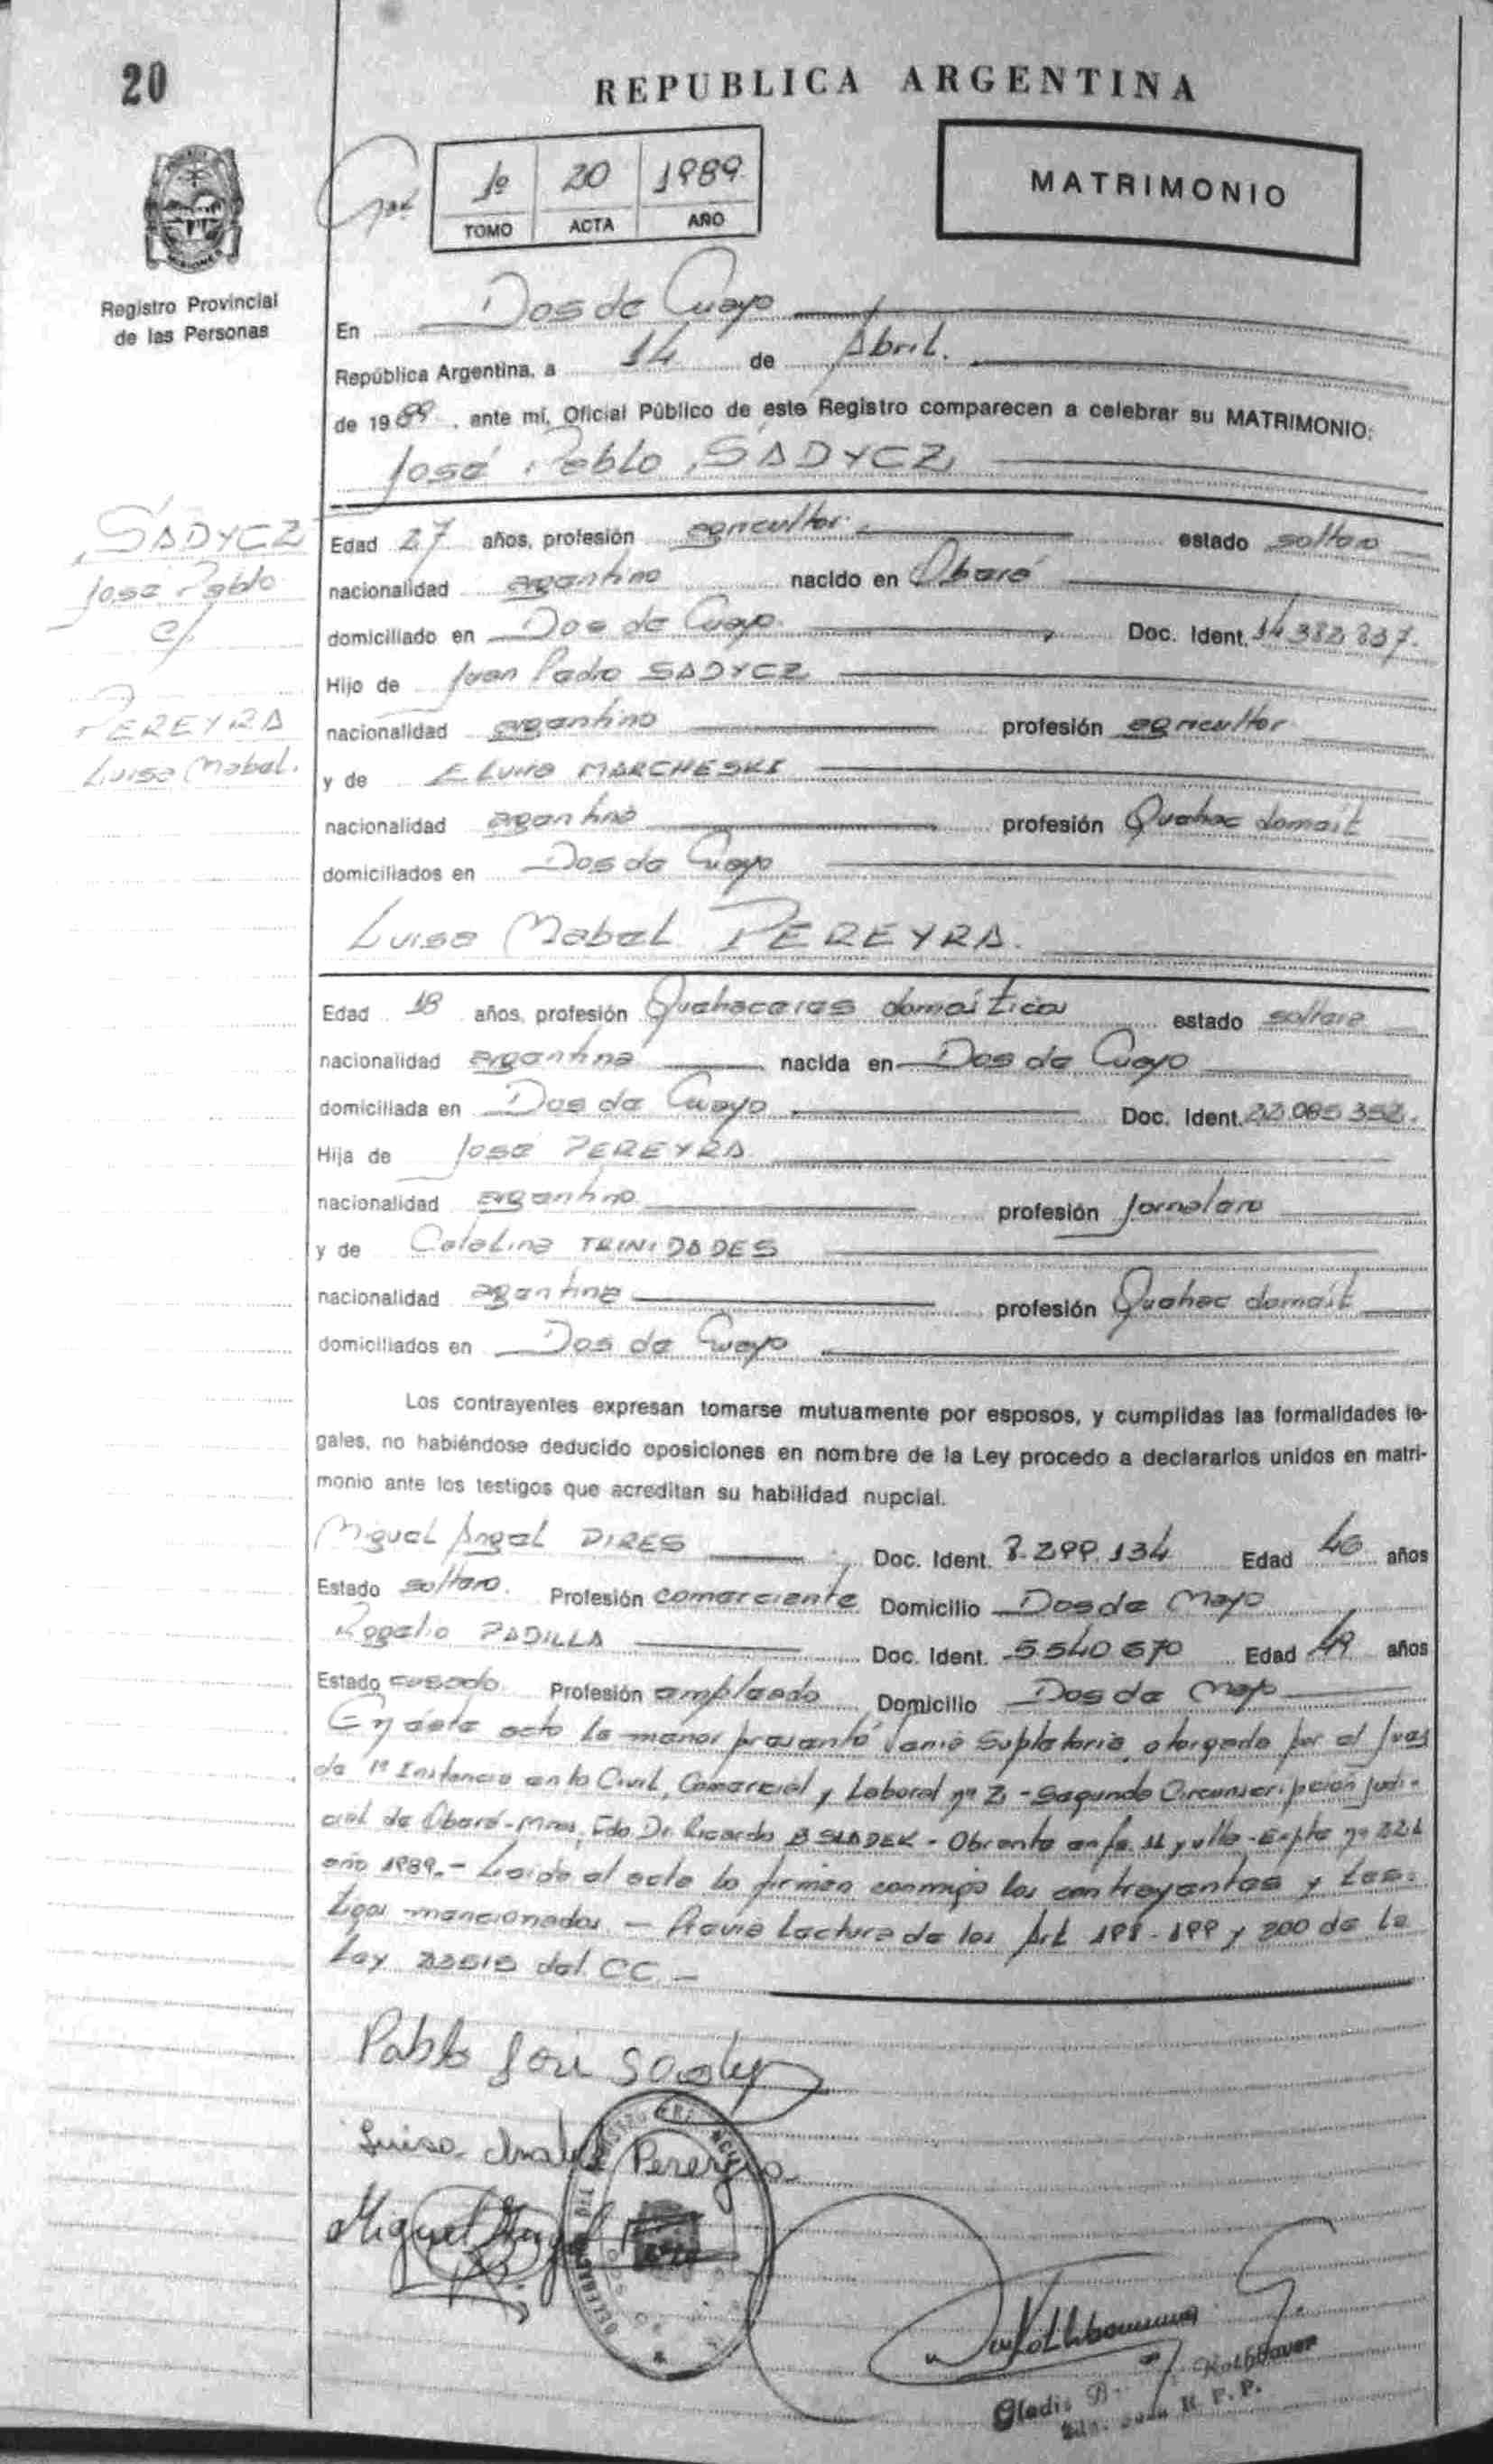 20
REPUBLICA ARGENTINA
1º 20 1989
TOMO ACTA AÑO
MATRIMONIO
Registro Provincial
de las Personas
En Dos de Mayo
República Argentina, a 14 de Abril.
de 1989, ante mí, Oficial Público de este Registro comparecen a celebrar su MATRIMONIO:
José Pablo SADYCZ
SADYCZ
José Pablo
c/
PEREYRA
Luisa Mabel.
Edad 27 años, profesión agricultor estado soltero
nacionalidad argentino nacido en Oberá
domiciliado en Dos de Mayo Doc. Ident. 14.382.837.
Hijo de Juan Pedro SADYCZ
nacionalidad argentino profesión agricultor
y de Elvira MARCHESKI
nacionalidad argentina profesión Quehac domést
domiciliados en Dos de Mayo
Luisa Mabel PEREYRA.
Edad 18 años, profesión Quehaceres domésticos estado soltera
nacionalidad argentina nacida en Dos de Mayo
domiciliada en Dos de Mayo Doc. Ident. 22.085.352.
Hija de José PEREYRA
nacionalidad argentino profesión Jornalero
y de Catalina TRINIDADES
nacionalidad argentina profesión Quehac domést
domiciliados en Dos de Mayo
Los contrayentes expresan tomarse mutuamente por esposos, y cumplidas las formalidades le-
gales, no habiéndose deducido oposiciones en nombre de la Ley procedo a declararlos unidos en matri-
monio ante los testigos que acreditan su habilidad nupcial.
Miguel Angel PIRES Doc. Ident. 7.299.134 Edad 40 años
Estado soltero. Profesión comerciante Domicilio Dos de Mayo
Rogelio PADILLA Doc. Ident. 5.540.670 Edad 49 años
Estado casado Profesión empleado Domicilio Dos de Mayo
En éste acto la menor presentó Venia Supletoria, otorgada por el Juez
de 1ª Instancia en lo Civil, Comercial y Laboral nº 2 - Segunda Circunscripción Judi-
cial de Oberá-Mnes, Fdo Dr. Ricardo B SLADEK - Obrante en fs. 11 y vlta - Expte nº 221
año 1989.- Leído el acta la firman conmigo los contrayentes y tes-
tigos mencionados. - Previa Lectura de los Art 198 - 199 y 200 de la
Ley 23515 del CC. -
Pablo José Sadycz
Luisa Mabel Pereyra
Miguel Angel
Gladis Rothbauer
R. P. P.